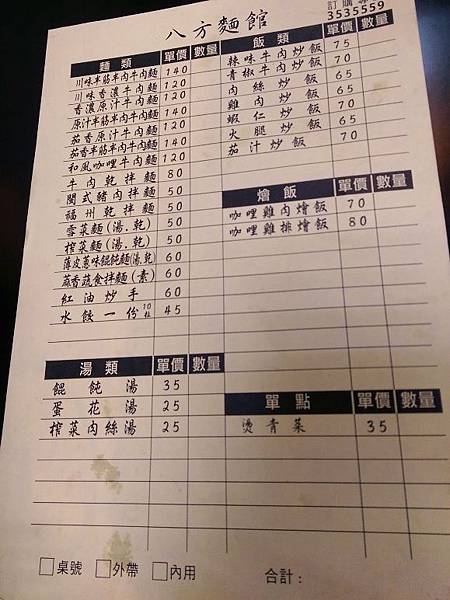 八方麵館
訂購
3535559
麵類 單價 數量
川味半筋半肉牛肉麵 140
川味香濃牛肉麵 120
香濃原汁牛肉麵 120
原汁半筋半肉牛肉麵 140
茄香原汁牛肉麵 120
茄香半筋半肉牛肉麵 140
和風咖哩牛肉麵 120
牛肉乾拌麵 80
閩式豬肉拌麵 50
福州乾拌麵 50
雪菜麵(湯,乾) 50
榨菜麵(湯,乾) 50
薄皮蔥味餛飩麵(湯,乾) 60
蔴香蔬食拌麵(素) 60
紅油炒手 60
水餃一份10粒 45
湯類 單價 數量
餛飩湯 35
蛋花湯 25
榨菜肉絲湯 25
飯類 單價 數量
辣味牛肉炒飯 75
青椒牛肉炒飯 70
肉絲炒飯 65
雞肉炒飯 65
蝦仁炒飯 70
火腿炒飯 65
茄汁炒飯 70
燴飯 單價 數量
咖哩雞肉燴飯 70
咖哩雞排燴飯 80
單點 單價 數量
燙青菜 35
桌號 外帶 內用 合計：